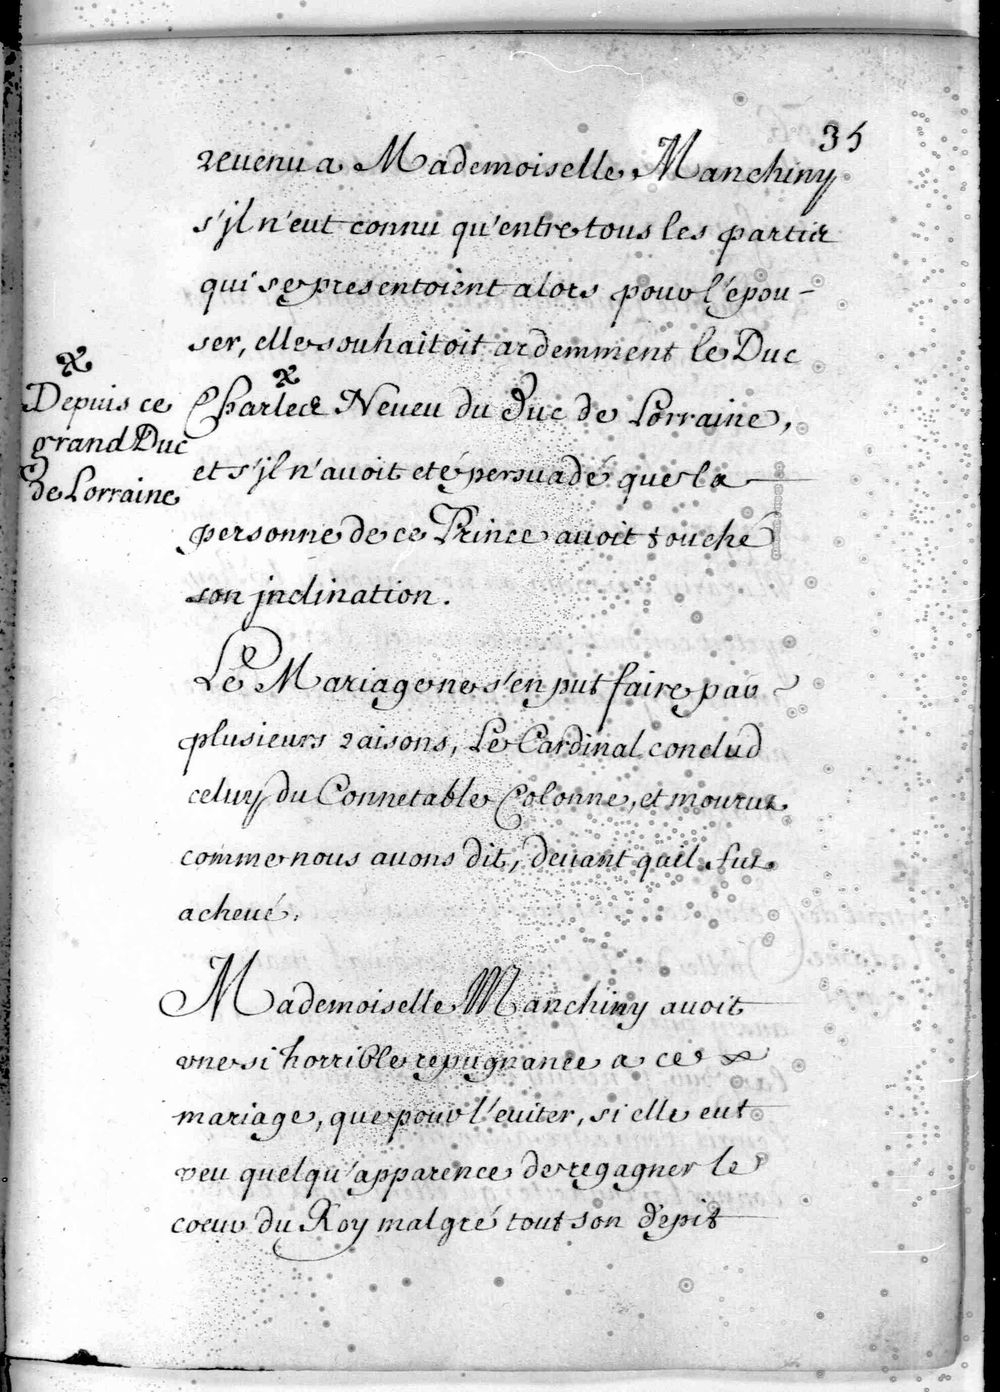 35
revenu a Mademoiselle Manchiny
s'jl n'eut connu qu'entre tous les partis
qui se presentoient alors pour l'épou-
ser, elle souhaitoit ardemment le Duc
Charles Neueu du Duc de Lorraine,
et s'jl n'avoit eté persuadé que la
personne de ce Prince auoit touché
son jnclination.
Depuis ce
grand Duc
de Lorraine
Le Mariage ne s'en put faire par
plusieurs raisons, Le Cardinal conclud
celuy du Connetable Colonne, et mourut
comme nous auons dit, deuant qu'il fut
acheué.
Mademoiselle Manchiny auoit
vne si horrible repugnance a ce
mariage, que pour l'euiter, si elle eut
veu quelqu'apparence de regagner le
coeur du Roy malgré tout son dépit